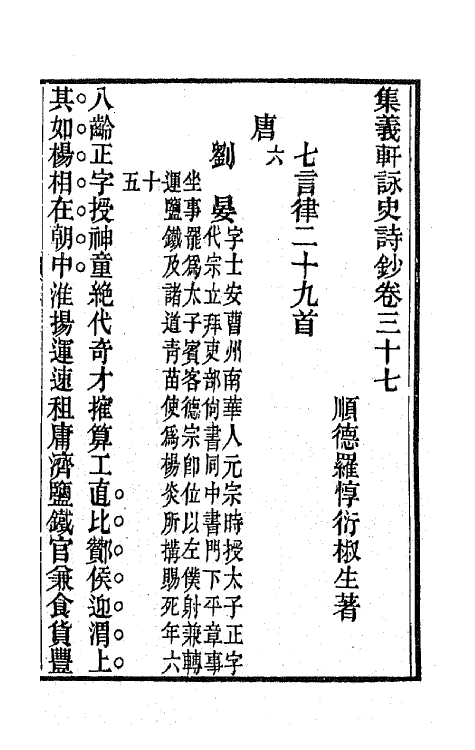 集義軒詠史詩鈔卷三十七
順德羅惇衍椒生著
七言律二十九首
唐六
劉晏
字士安曹州南華人元宗時授太子正字
代宗立拜吏部尚書同中書門下平章事
坐事罷爲太子賓客德宗即位以左僕射兼轉
運鹽鐵及諸道青苗使爲楊炎所搆賜死年六
十五
八齡正字授神童絶代奇才搉算工直比酇侯迎渭上
其如楊相在朝中淮揚運速租庸濟鹽鐵官兼食貨豐